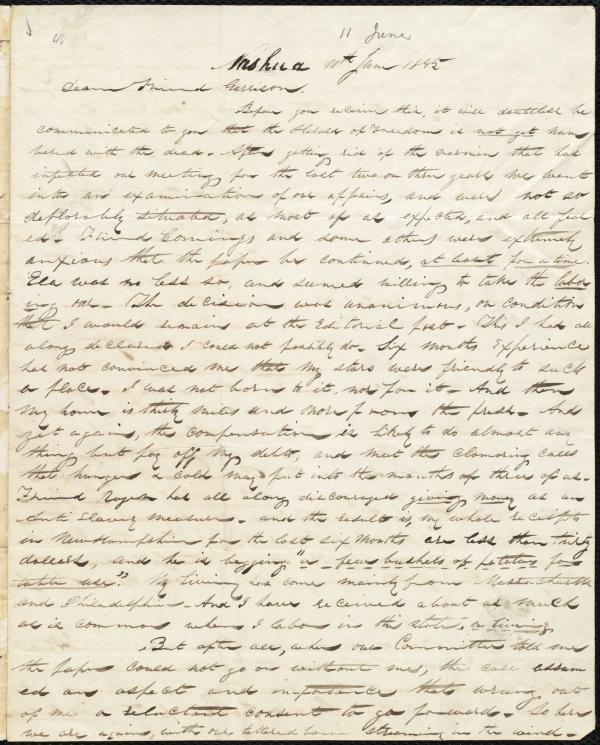 11 June
Nashua 10th June 1845
Dear Friend Garrison.
Before you receive this, it will doubtless be
communicated to you that the Herald of Freedom is not yet num
bered with the dead. After getting rid of the vermin that has
infested our meetings for the last two or three years we went
into an examination of our affairs, and were not so
deplorably situated, as most of us expected, and all fear
ed. Friend Comings and some others were extremely
anxious that the paper be continued, at least for a time.
Ela was no less so, and seemed willing to take the labor
ing oar. The decision was unanimous, on condition
that I would remain at the Editorial post. This I had all
along declared I could not possibly do. Six months Experience
has not convinced me that my stars were friendly to such
a place. I was not born to it, nor for it. And then
my home is thirty miles and more from the press. And
yet again, the compensation is likely to do almost any
thing but pay off my debts, and meet the clamoring calls
that hunger & cold may put into the mouths of three of us.
Friend Rogers has all along discouraged giving money as an
Anti Slavery measure. and the result is, my whole receipts
in New Hampshire for the last six months are less than thirty
dollars, and he is begging "a few bushels of potatoes for
table use". My living has come mainly from Massachusetts
and Philadelphia. And I have received about as much
as is common when I labor in this state, a living.
But after all, when our Committee told me
the paper could not go on without me, the case assum
ed an aspect and importance that wrung out
of me a reluctant consent to go forward. So here
we are again, with our tattered banner streaming in the wind.